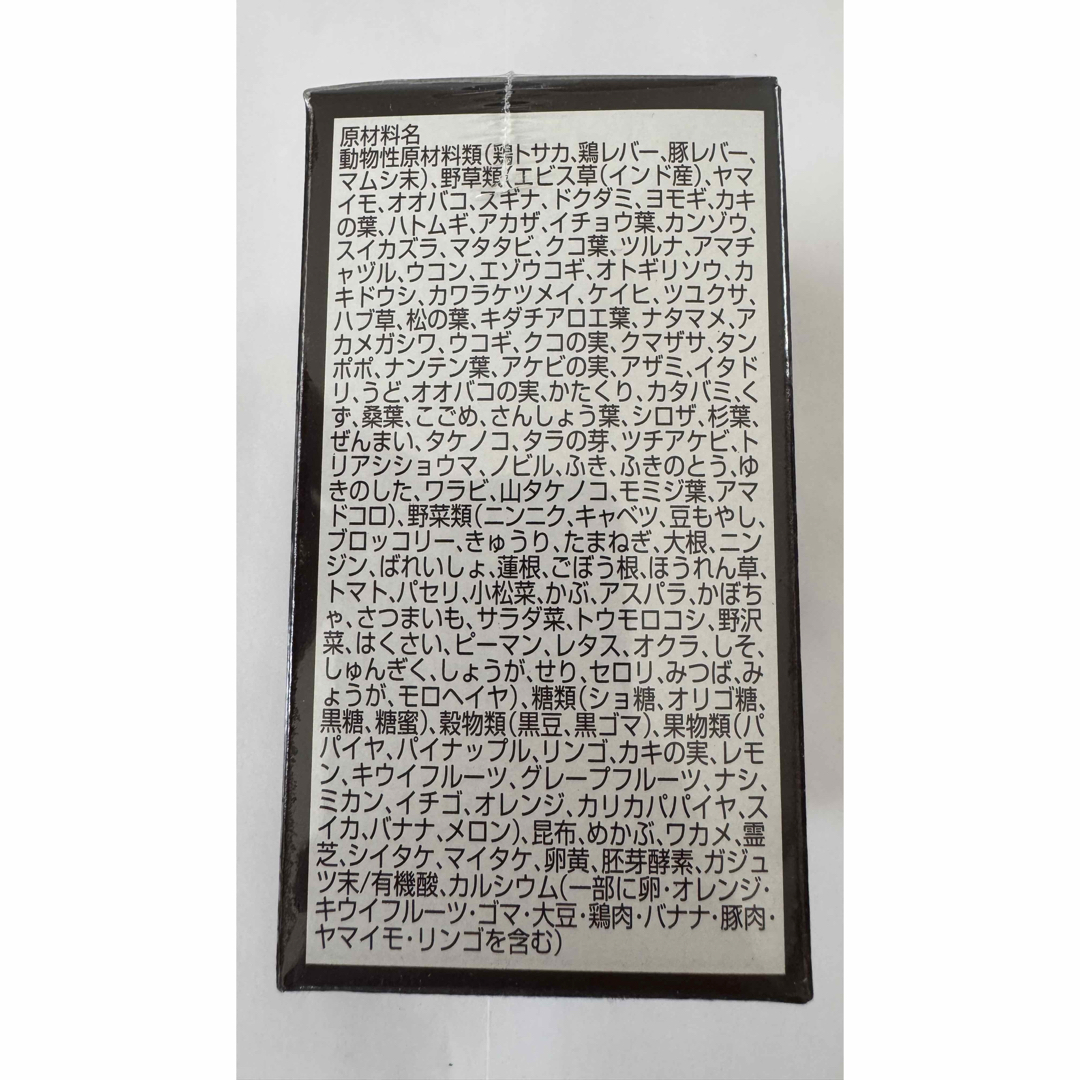 原材料名
動物性原材料類(鶏トサカ、鶏レバー、豚レバー、
マムシ末)、野草類(エビス草(インド産)、ヤマ
イモ、オオバコ、スギナ、ドクダミ、ヨモギ、カキ
の葉、ハトムギ、アカザ、イチョウ葉、カンゾウ、
スイカズラ、マタタビ、クコ葉、ツルナ、アマチ
ャヅル、ウコン、エゾウコギ、オトギリソウ、カ
キドウシ、カワラケツメイ、ケイヒ、ツユクサ、
ハブ草、松の葉、キダチアロエ葉、ナタマメ、ア
カメガシワ、ウコギ、クコの実、クマザサ、タン
ポポ、ナンテン葉、アケビの実、アザミ、イタド
リ、うど、オオバコの実、かたくり、カタバミ、く
ず、桑葉、こごめ、さんしょう葉、シロザ、杉葉、
ぜんまい、タケノコ、タラの芽、ツチアケビ、ト
リアシショウマ、ノビル、ふき、ふきのとう、ゆ
きのした、ワラビ、山タケノコ、モミジ葉、アマ
ドコロ)、野菜類(ニンニク、キャベツ、豆もやし、
ブロッコリー、きゅうり、たまねぎ、大根、ニン
ジン、ばれいしょ、蓮根、ごぼう根、ほうれん草、
トマト、パセリ、小松菜、かぶ、アスパラ、かぼち
ゃ、さつまいも、サラダ菜、トウモロコシ、野沢
菜、はくさい、ピーマン、レタス、オクラ、しそ、
しゅんぎく、しょうが、せり、セロリ、みつば、み
ょうが、モロヘイヤ)、糖類(ショ糖、オリゴ糖、
黒糖、糖蜜)、穀物類(黒豆、黒ゴマ)、果物類(パ
パイヤ、パイナップル、リンゴ、カキの実、レモ
ン、キウイフルーツ、グレープフルーツ、ナシ、
ミカン、イチゴ、オレンジ、カリカパパイヤ、ス
イカ、バナナ、メロン)、昆布、めかぶ、ワカメ、霊
芝、シイタケ、マイタケ、卵黄、胚芽酵素、ガジュ
ツ末/有機酸、カルシウム(一部に卵・オレンジ・
キウイフルーツ・ゴマ・大豆・鶏肉・バナナ・豚肉・
ヤマイモ・リンゴを含む)